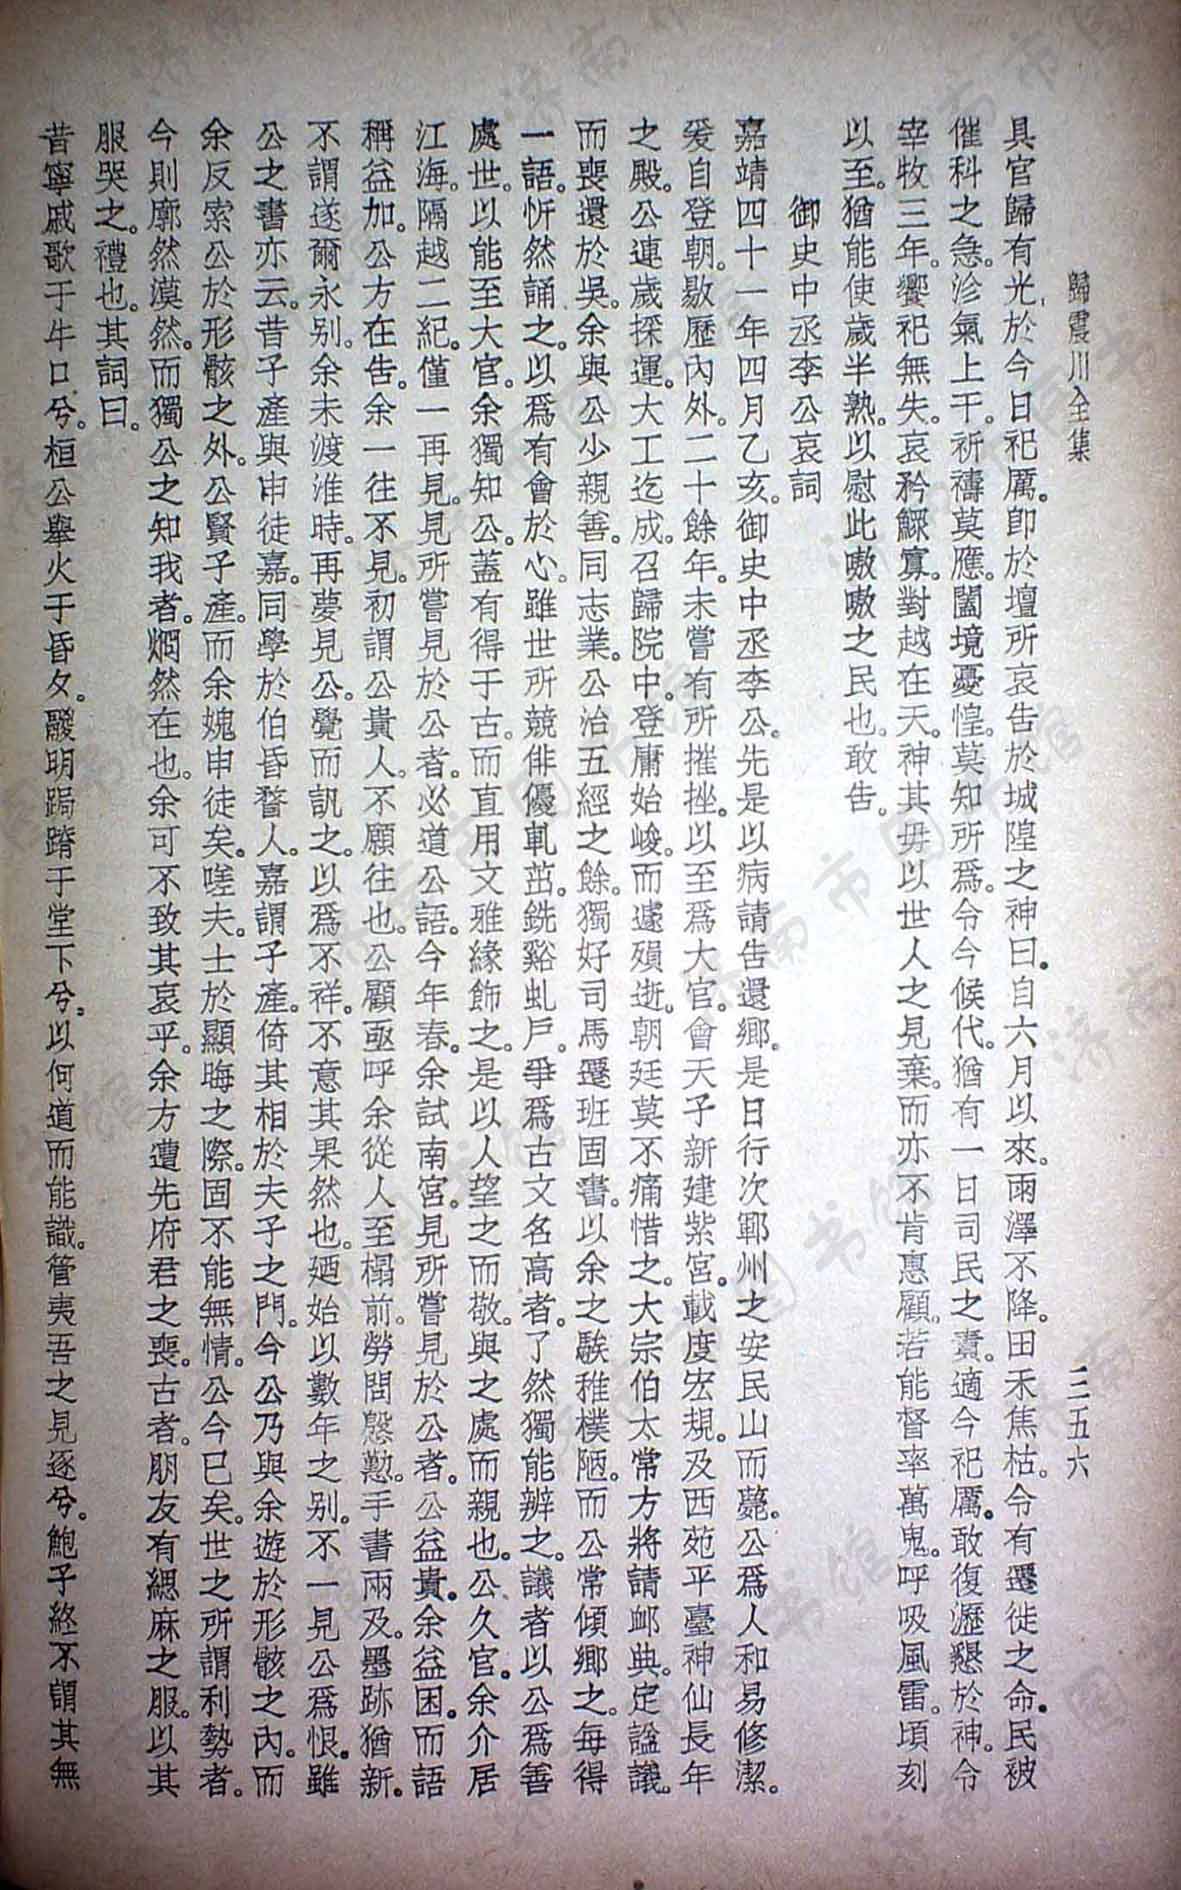 歸震川全集
三五六
具官歸有光、於今日祀厲。卽於壇所哀告於城隍之神曰。自六月以來。雨澤不降。田禾焦枯。令有遷徙之命。民被
催科之急。沴氣上干。祈禱莫應。闔境憂惶。莫知所爲。令今候代。猶有一日司民之責。適今祀厲。敢復瀝懇於神。令
宰牧三年。饗祀無失。哀矜鰥寡。對越在天。神其毋以世人之見棄。而亦不肯惠顧。若能督率萬鬼。呼吸風雷。頃刻
以至。猶能使歲半熟。以慰此嗷嗷之民也。敢告。
御史中丞李公哀詞
嘉靖四十一年四月乙亥。御史中丞李公。先是以病請告還鄉。是日行次鄆州之安民山而薨。公爲人和易修潔。
爰自登朝。敭歷內外。二十餘年。未嘗有所摧挫。以至爲大官。會天子新建紫宮。載度宏規。及西苑平臺神仙長年
之殿。公連歲採運。大工迄成。召歸院中。登庸始峻。而遽殞逝。朝廷莫不痛惜之。大宗伯太常方將請邮典。定諡議。
而喪還於吳。余與公少親善。同志業。公治五經之餘。獨好司馬遷班固書。以余之騃稚樸陋。而公常傾鄉之。每得
一語。忻然誦之。以爲有會於心。雖世所競俳優軋茁。銑谿虬戶。爭爲古文名高者。了然獨能辨之。議者以公爲善
處世。以能至大官。余獨知公。蓋有得于古。而直用文雅緣飾之。是以人望之而敬。與之處而親也。公久官。余介居
江海。隔越二紀。僅一再見。見所嘗見於公者。必道公語。今年春。余試南宮。見所嘗見於公者。公益貴。余益困。而語
稱益加。公方在告。余一往不見。初謂公貴人。不願往也。公顧亟呼余從人至榻前。勞問慇懃。手書兩及。墨跡猶新。
不謂遂爾永別。余未渡淮時。再夢見公。覺而訊之。以爲不祥。不意其果然也。廼始以數年之別。不一見公爲恨。雖
公之書亦云。昔子產與申徒嘉。同學於伯昏瞀人。嘉謂子產。倚其相於夫子之門。今公乃與余遊於形骸之內。而
余反索公於形骸之外。公賢子產。而余媿申徒矣。嗟夫。士於顯晦之際。固不能無情。公今已矣。世之所謂利勢者。
今則廓然漠然。而獨公之知我者。炯然在也。余可不致其哀乎。余方遭先府君之喪。古者。朋友有緦麻之服。以其
服哭之。禮也。其詞曰。
昔寧戚歌于牛口兮。桓公舉火于昏夕。鬷明跼蹐于堂下兮。以何道而能識。管夷吾之見逐兮。鮑子終不謂其無